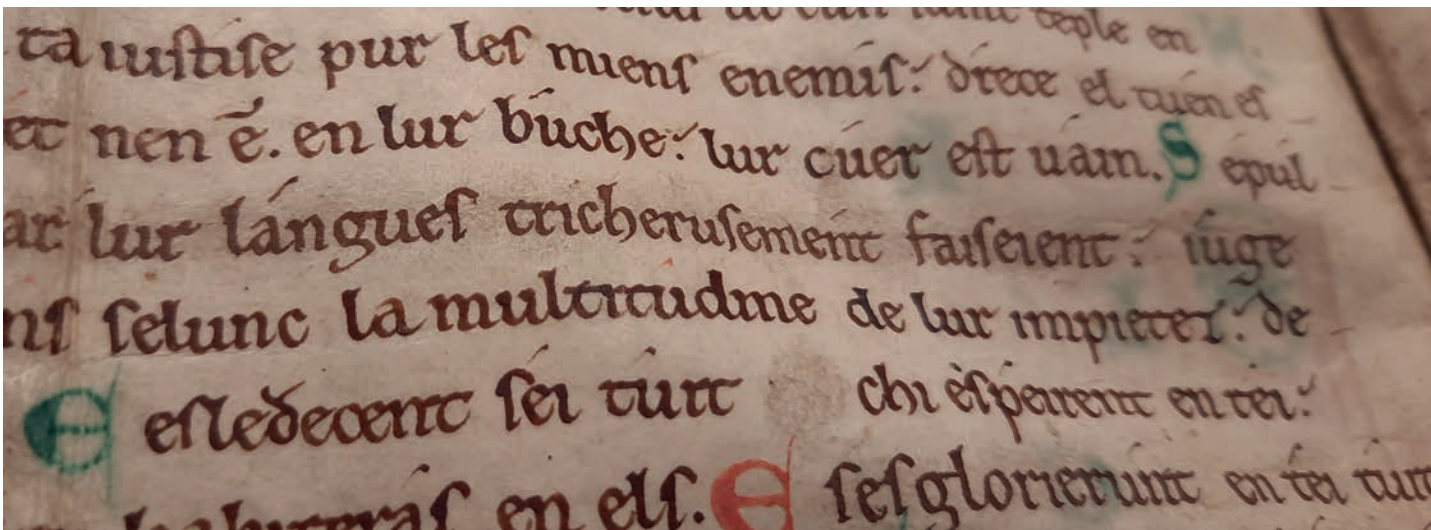 teple en
ta iustise pur les miens enemis: drece el tuen es
et nen ē. en lur buche: lur cuer est uain. S epul
ar lur langues tricherusement faiseient: iuge
ns selunc la multitudine de lur impietez: de
E esledecent sei tuit chi espeirent en tei:
habiteras en els. E sesglorierunt en tei tuit